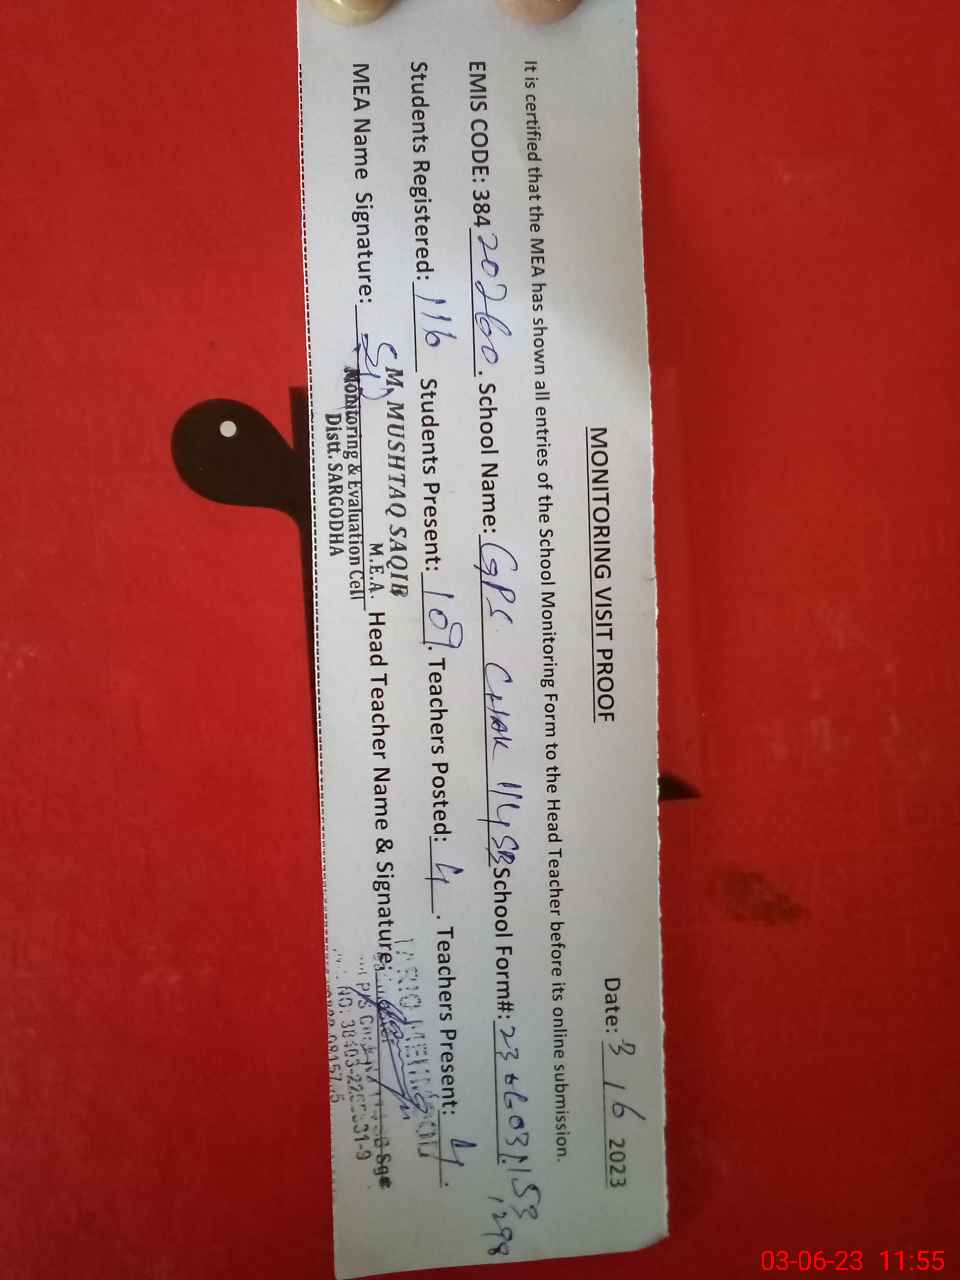 MONITORING VISIT PROOF
Date: 3/6 2023
It is certified that the MEA has shown all entries of the School Monitoring Form to the Head Teacher before its online submission.
EMIS CODE: 38420260. School Name: GPS CHAK 114 SB School Form#:
Students Registered: 116 Students Present: 109. Teachers Posted: 4. Teachers Present: 4.
MEA Name Signature: Head Teacher Name & Signature:
M. MUSHTAQ SAQIB
M.E.A.
Monitoring & Evaluation Cell
Distt. SARGODHA
03-06-23 11:55